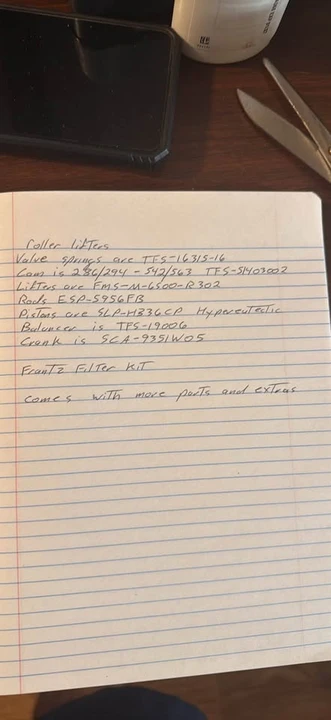 Roller lifters
Valve springs are TFS-16315-16
Cam is 236/294 - 542/563 TFS-51403002
Lifters are FMS-M-6500-R302
Rods ESP-5956FB
Pistons are SLP-H836CP Hypereutectic
Balancer is TFS-19006
Crank is SCA-9351W05
Frantz Filter Kit
comes with more parts and extras